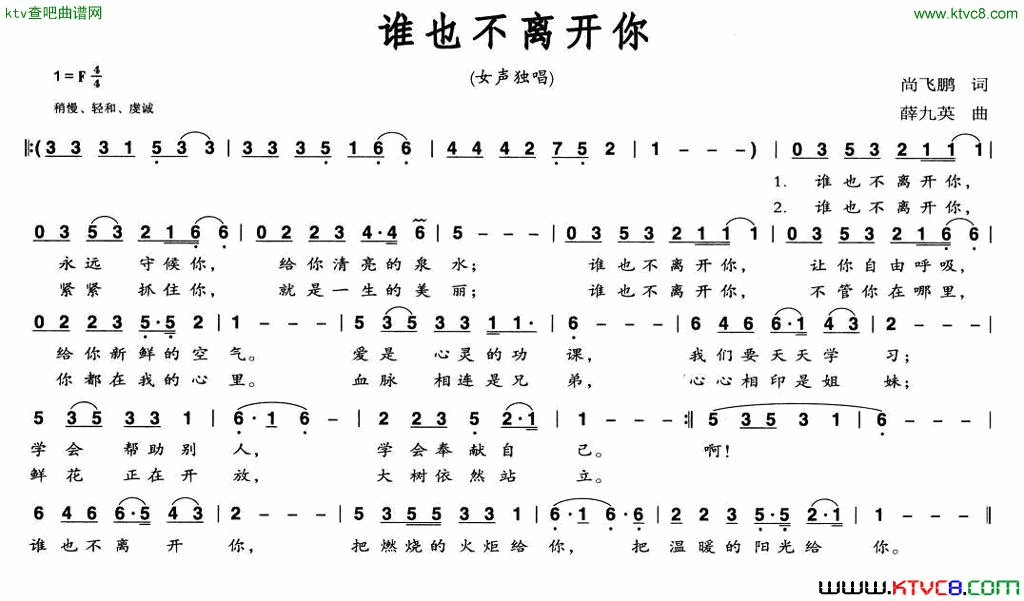 ktv查吧曲谱网
www.ktvc8.com
谁也不离开你
(女声独唱)
1=F 4/4
尚飞鹏 词
稍慢、轻和、虔诚
薛九英 曲
‖:(3 3 3 1 5 3 3 | 3 3 3 5 1 6 6 | 4 4 4 2 7 5 2 | 1 - - -) | 0 3 5 3 2 1 1 1 |
1. 谁也不离开你,
2. 谁也不离开你,
0 3 5 3 2 1 6 6 | 0 2 2 3 4·4 6 | 5 - - - | 0 3 5 3 2 1 1 1 | 0 3 5 3 2 1 6 6 |
永远 守候你, 给你清亮的泉水; 谁也不离开你, 让你自由呼吸,
紧紧 抓住你, 就是一生的美丽; 谁也不离开你, 不管你在哪里,
0 2 2 3 5·5 2 | 1 - - - | 5 3 5 3 3 1 1 1· | 6 - - - | 6 4 6 6·1 4 3 | 2 - - - |
给你新鲜的空气。 爱是 心灵的功课, 我们要天天学习;
你都在我的心里。 血脉 相连是兄弟, 心心相印是姐妹;
5 3 5 3 3 1 | 6·1 6 - | 2 2 3 5 2·1 | 1 - - - :‖ 5 3 5 3 1 | 6 - - - |
学会 帮助别人, 学会奉献自己。 啊!
鲜花 正在开放, 大树依然站立。
6 4 6 6·5 4 3 | 2 - - - | 5 3 5 5 3 3 1 | 6·1 6·6 | 2 2 3 5·5 2·1 | 1 - - - ‖
谁也不离开你, 把燃烧的火炬给你, 把温暖的阳光给你。
www.KTVC8.com